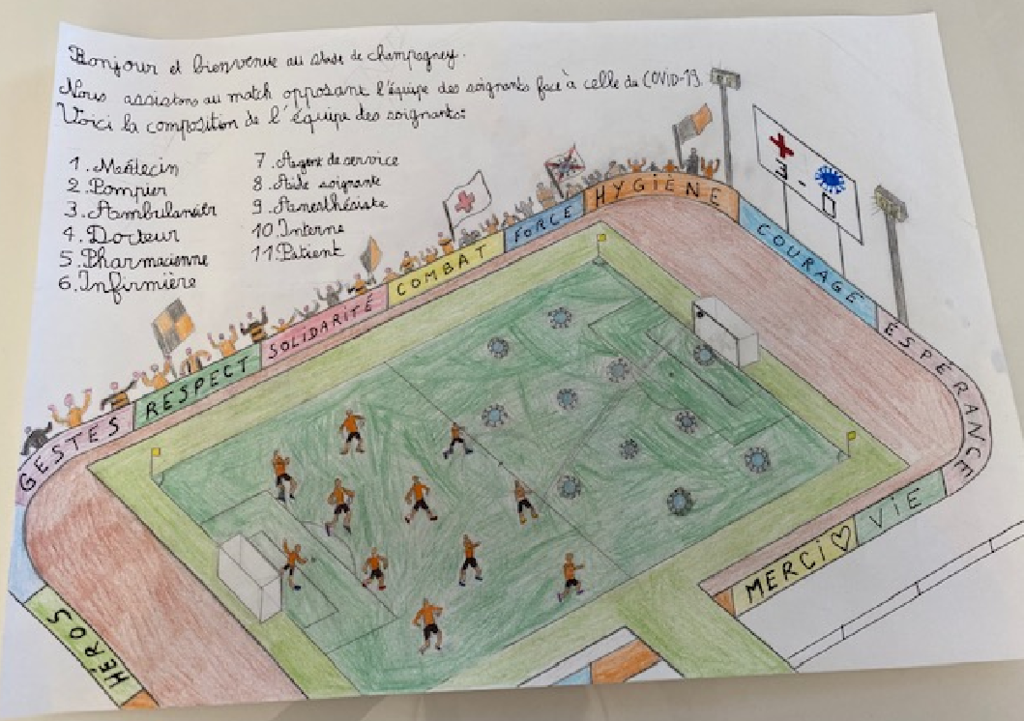 Bonjour et bienvenue au stade de champagney.
Nous assistons au match opposant l'équipe des soignants face à celle du COVID-19.
Voici la composition de l'équipe des soignants:
1. Médecin
2. Pompier
3. Aambulancier
4. Docteur
5. Pharmacienne
6. Infirmière
7. Aagent de service
8. Aaide soignante
9. Aanesthésiste
10 Interne
11 Patient
GESTES
RESPECT
SOLIDARITÉ
COMBAT
FORCE
HYGIÈNE
COURAGE
ESPÉRANCE
3 - 0
VIE
MERCI
HÉROS